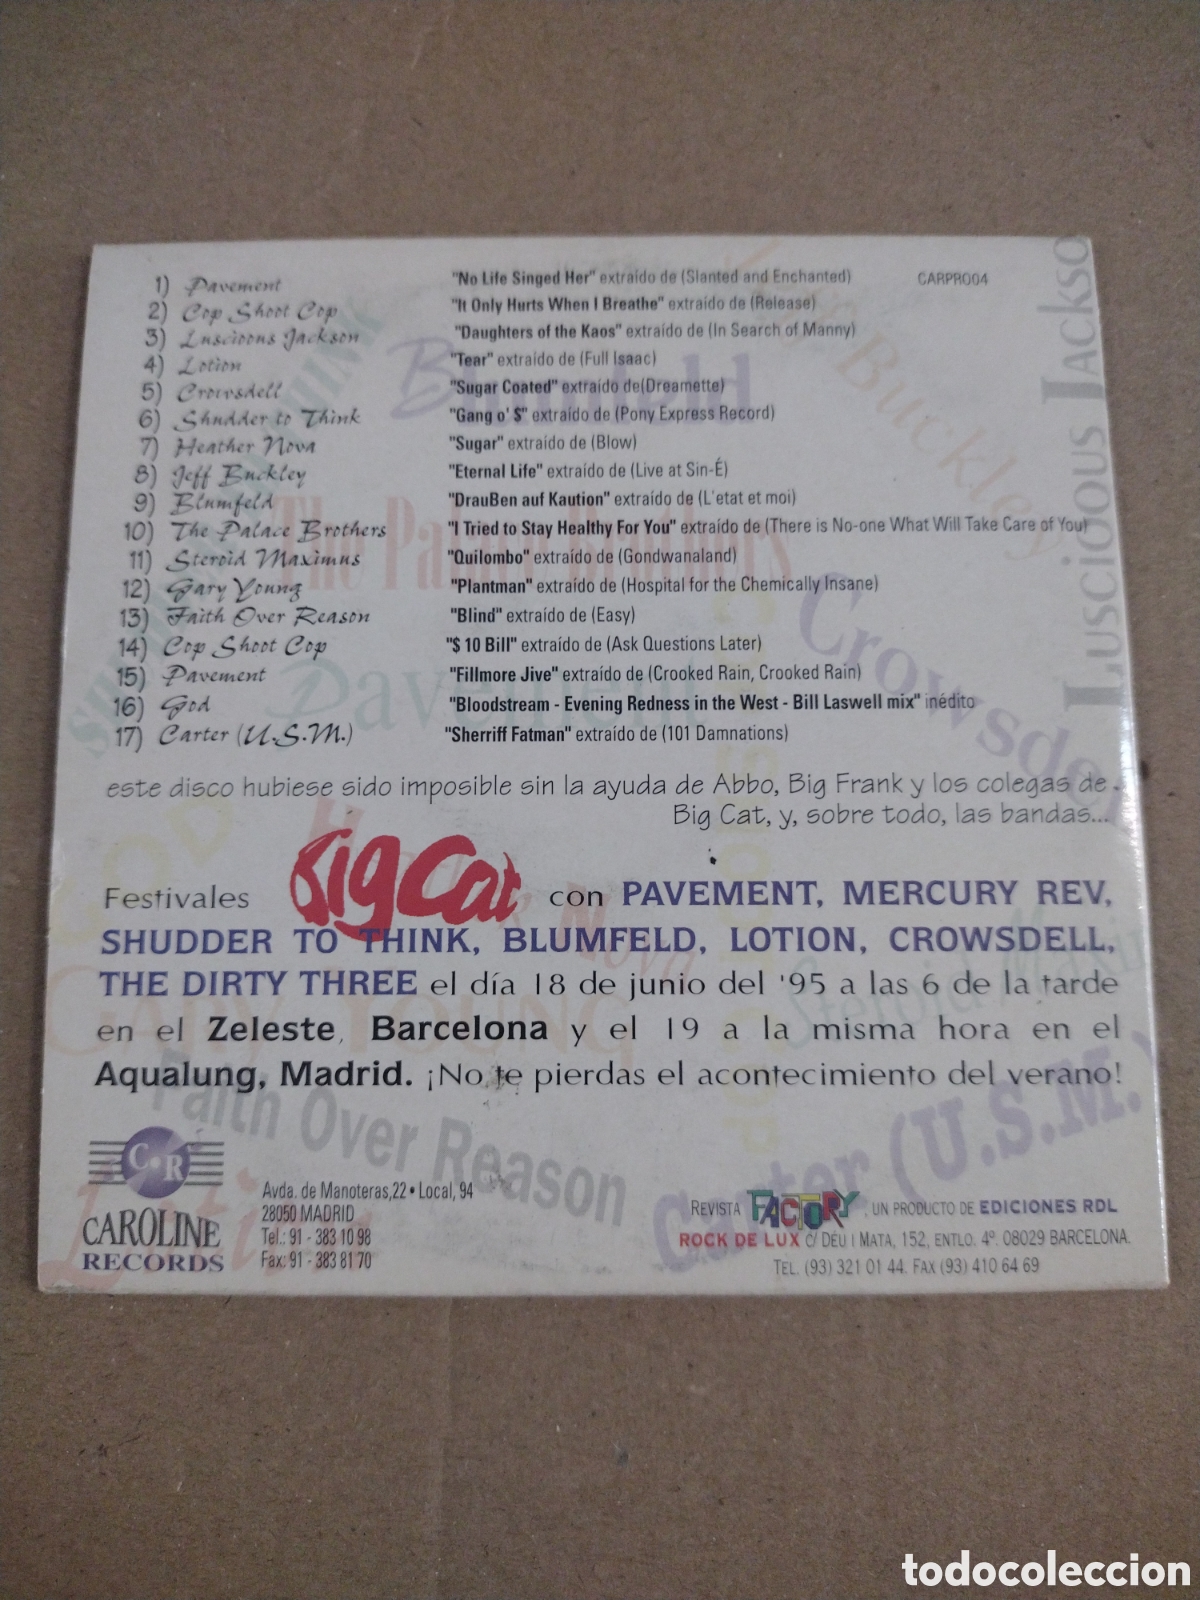 1) Pavement "No Life Singed Her" extraído de (Slanted and Enchanted) CARPRO04
2) Cop Shoot Cop "It Only Hurts When I Breathe" extraído de (Release)
3) Luscioous Jackson "Daughters of the Kaos" extraído de (In Search of Manny)
4) Lotion "Tear" extraído de (Full Isaac)
5) Crowsdell "Sugar Coated" extraído de(Dreamette)
6) Shudder to Think "Gang o' $" extraído de (Pony Express Record)
7) Heather Nova "Sugar" extraído de (Blow)
8) Jeff Buckley "Eternal Life" extraído de (Live at Sin-É)
9) Blumfeld "DrauBen auf Kaution" extraído de (L'etat et moi)
10) The Palace Brothers "I Tried to Stay Healthy For You" extraído de (There is No-one What Will Take Care of You)
11) Steroid Maximus "Quilombo" extraído de (Gondwanaland)
12) Gary Young "Plantman" extraído de (Hospital for the Chemically Insane)
13) Faith Over Reason "Blind" extraído de (Easy)
14) Cop Shoot Cop "$ 10 Bill" extraído de (Ask Questions Later)
15) Pavement "Fillmore Jive" extraído de (Crooked Rain, Crooked Rain)
16) God "Bloodstream - Evening Redness in the West - Bill Laswell mix" inédito
17) Carter (U.S.M.) "Sherriff Fatman" extraído de (101 Damnations)
este disco hubiese sido imposible sin la ayuda de Abbo, Big Frank y los colegas de
Big Cat, y, sobre todo, las bandas...
Festivales Big Cat con PAVEMENT, MERCURY REV,
SHUDDER TO THINK, BLUMFELD, LOTION, CROWSDELL,
THE DIRTY THREE el día 18 de junio del '95 a las 6 de la tarde
en el Zeleste, Barcelona y el 19 a la misma hora en el
Aqualung, Madrid. ¡No te pierdas el acontecimiento del verano!
C R
CAROLINE
RECORDS
Avda. de Manoteras,22 • Local, 94
28050 MADRID
Tel.: 91 - 383 10 98
Fax: 91 - 383 81 70
REVISTA FACTORY, UN PRODUCTO DE EDICIONES RDL
ROCK DE LUX C/ DÉU I MATA, 152, ENTLO. 4º. 08029 BARCELONA.
TEL. (93) 321 01 44. FAX (93) 410 64 69
Jeff Buckley
Luscioous Jackso
Blumfeld
The Palace Brothers
Crowsdell
Pavement
GOD
Heather Nova
Steroid Maxim
Gary Young
Faith Over Reason
Carter (U.S.M.)
Lotion
todocoleccion